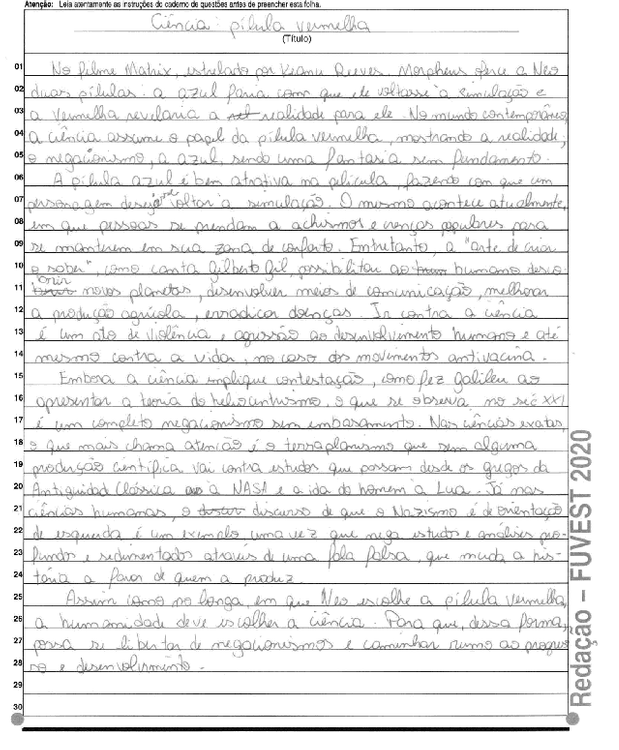 Atenção: Leia atentamente as instruções do caderno de questões antes de preencher esta folha.
Ciência: pílula vermelha
(Título)
01 No filme Matrix, estrelado por Keanu Reeves, Morpheus oferce a Neo
02 duas pílulas: a azul faria com que ele voltasse à simulação e
03 a vermelha revelaria a realidade para ele. No mundo contemporâneo,
04 a ciência assume o papel da pílula vermelha, mostrando a realidade;
05 o negacionismo, a azul, sendo uma fantasia sem fundamento.
06 A pílula azul é bem atrativa na película, fazendo com que um
07 personagem deseje voltar à simulação. O mesmo acontece atualmente,
08 em que pessoas se prendam a achismos e crenças populares para
09 se manterem em sua zona de conforto. Entretanto, a "arte de criar
10 o saber", como canta Gilberto Gil, possibilitou ao humano desco-
11 brir novos planetas, desenvolver meios de comunicação, melhorar
12 a produção agrícola, erradicar doenças. Ir contra a ciência
13 é um ato de violência e agressão ao desenvolvimento humano e até
14 mesmo contra a vida, no caso dos movimentos antivacina.
15 Embora a ciência implique contestação, como fez galileu ao
16 apresentar a teoria do heliocentrismo, o que se observa no séc XXI
17 é um completo negacionismo sem embasamento. Nas ciências exatas,
18 o que mais chama atenção é o terraplanismo que sem alguma
19 produção científica vai contra estudos que passam desde os gregos da
20 Antiguidad Clássica à NASA e a ida do homem à Lua. Já nas
21 ciências humanas, o discurso de que o Nazismo é de orientação
22 de esquerda é um exemplo uma vez que nega estudos e análises pro-
23 fundos e sedimentados através de uma fala falsa, que muda a his-
24 tória a favor de quem a produz.
25 Assim como no longa, em que Neo escolhe a pílula vermelha,
26 a humanidade deve escolher a ciência. Para que, dessa forma,
27 possa se libertar de negacionismos e caminhar rumo ao progres
28 so e desenvolvimento.
29
30
Redação – FUVEST 2020